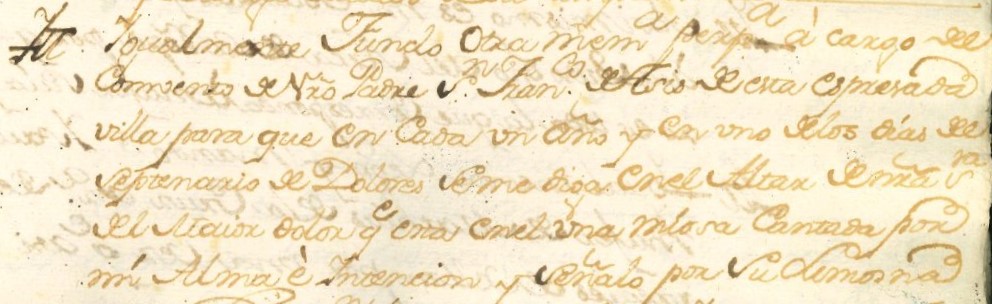 Igualmente Fundo Otra mem.a perp.a à cargo del
Convento de Nrõ Padre S.n Fran.co de Asis de esta expresada
villa para que en Cada un año y en uno de los dias del
Septenario de Dolores se me diga en el Altar de nrã S.ra
del Maior dolor q.e esta en el una missa Cantada por
mi Alma è Intencion y señalo por su Limosna